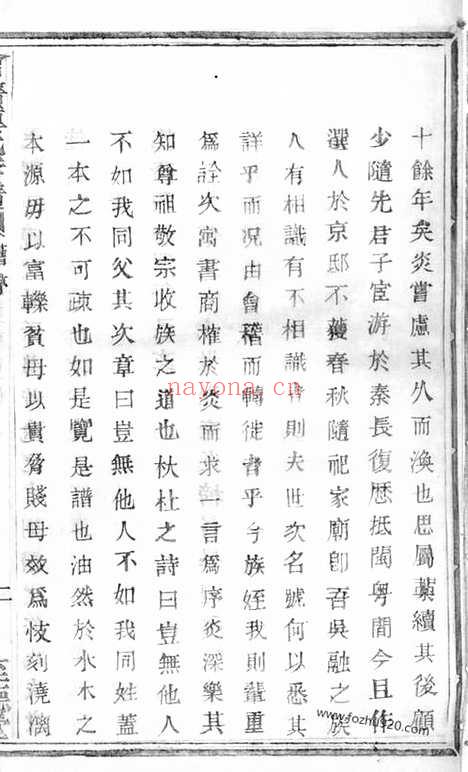 十餘年矣炎嘗慮其久而渙也思屬藁續其後顧
少隨先君子宦游於秦長復歷抵閩粤間今且作
選人於京邸不獲春秋隨祀家廟卽吾吳融之族
人有相識有不相識者則夫世次名號何以悉其
詳乎而况由會稽而轉徙者乎今族姪我則輩重
爲詮次寓書商榷於炎而求一言爲序炎深樂其
知尊祖敬宗收族之道也杕杜之詩曰豈無他人
不如我同父其次章曰豈無他人不如我同姓蓋
一本之不可疎也如是覽是譜也油然於水木之
本源毋以富轢貧毋以貴脅賤毋效爲忮刻澆漓
譜序
二
nayona.cn
www.fozhu920.com